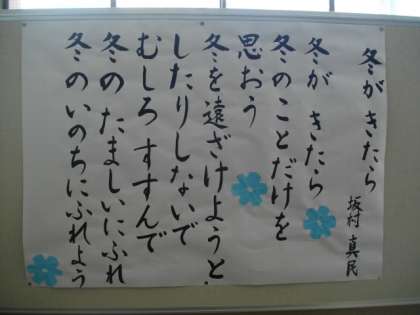 冬がきたら
坂村真民
冬が きたら
冬のことだけを
思おう
冬を遠ざけようと
したりしないで
むしろすすんで
冬の たましいにふれ
冬のいのちにふれよう